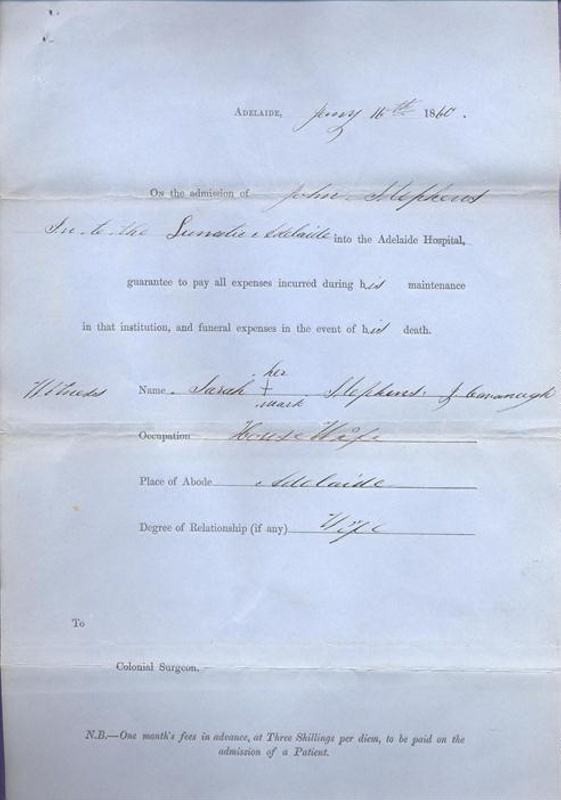 ADELAIDE, Jany 16th 1860.
On the admission of John Stephens
In to the Lunatic Adelaide into the Adelaide Hospital,
guarantee to pay all expenses incurred during his maintenance
in that institution, and funeral expenses in the event of his death.
her
Witness Name Sarah + Stephens. J Cavanagh
mark
Occupation House Wife
Place of Abode Adelaide
Degree of Relationship (if any) Wife
To
Colonial Surgeon.
N.B.—One month's fees in advance, at Three Shillings per diem, to be paid on the
admission of a Patient.